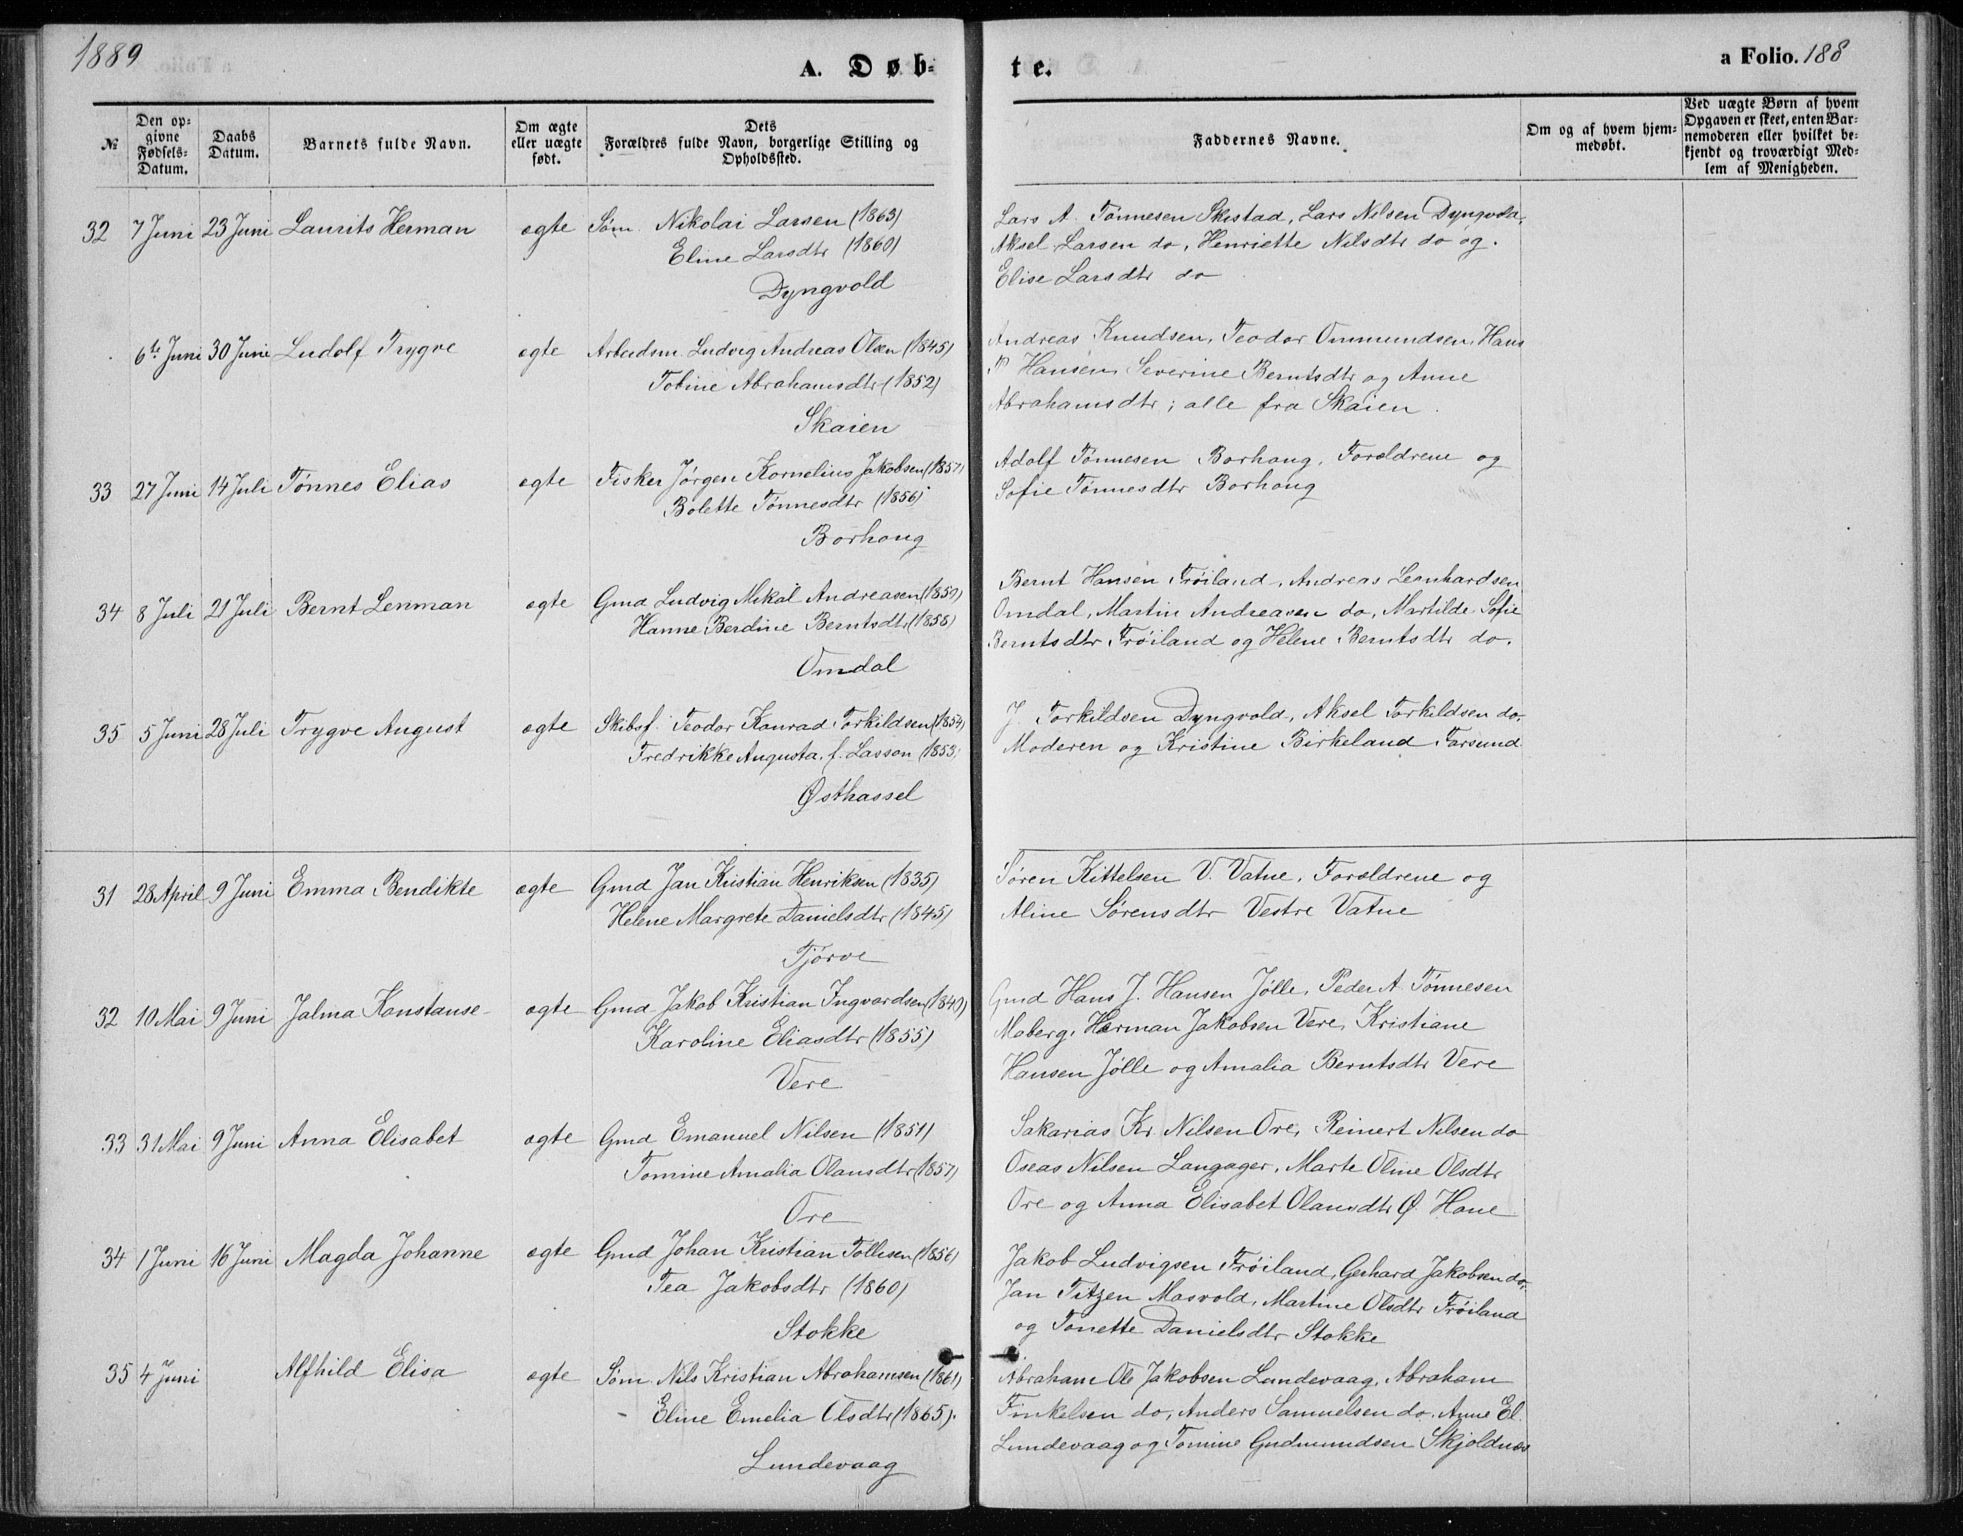 1889
A. Døb-
te.
a Folio. 188
№
Den op-
givne
Fødsels-
Datum.
Daabs
Datum.
Barnets fulde Navn.
Om ægte
eller uægte
født.
Dets
Forældres fulde Navn, borgerlige Stilling og
Opholdssted.
Faddernes Navne.
Om og af hvem hjem-
medøbt.
Ved uægte Børn af hvem
Opgaven er skeet, enten Bar-
nemoderen eller hvilket be-
kjendt og troværdigt Med-
lem af Menigheden.
32 7 Juni 23 Juni Laurits Herman ægte Søm. Nikolai Larsen (1863)
Eline Larsdtr (1860)
Dyngvold
Lars A. Tønnesen Skistad, Lars Nilsen Dyngvold,
Aksel Larsen do, Henriette Nilsdtr do og
Elise Larsdtr do
6te Juni 30 Juni Ludolf Trygve ægte Arbeidsm. Ludvig Andreas Olsen (1845)
Tobine Abrahamsdtr (1852)
Skaien
Andreas Knudsen, Teodor Ommundsen, Hans
P Hansen, Severine Berntsdtr og Anne
Abrahamsdtr; alle fra Skaien.
33 27 Juni 14 Juli Tønnes Elias ægte Fisker Jørgen Kornelius Jakobsen (1857)
Bolette Tønnesdtr (1856)
Borhaug
Adolf Tønnesen Borhaug, Forældrene og
Sofie Tønnesdtr Borhaug
34 8 Juli 21 Juli Bernt Lenman ægte Gmd Ludvig Mikal Andreasen (1859)
Hanne Berdine Berntsdtr (1858)
Omdal
Bernt Hansen Frøiland, Andreas Leonhardsen
Omdal, Martin Andreasen do, Martilde Sofie
Berntsdtr Frøiland og Helene Berntsdtr do.
35 5 Juni 28 Juli Trygve August ægte Skibsf. Teodor Konrad Torkildsen (1854)
Fredrikke Augusta, f. Lasson (1853)
Østhassel
J. Torkildsen Dyngvold, Aksel Torkildsen do.
Moderen og Kristine Birkeland Farsund
31 28 April 9 Juni Emma Bendikte ægte Gmd Jan Kristian Henriksen (1835)
Helene Margrete Danielsdtr (1845)
Tjørve
Søren Kittelsen V. Vatne, Forældrene og
Aline Sørensdtr Vestre Vatne
32 10 Mai 9 Juni Jalma Konstanse ægte Gmd Jakob Kristian Ingvardsen (1849)
Karoline Eliasdtr (1855)
Vere
Gmd Hans J. Hansen Jølle, Peder A. Tønnesen
Moberg, Herman Jakobsen Vere, Kristiane
Hansen Jølle og Amalia Berntsdtr Vere
33 31 Mai 9 Juni Anna Elisabet ægte Gmd Emanuel Nilsen (1851)
Tomine Amalia Olausdtr (1857)
Ore
Sakarias Kr Nilsen Ore, Reinert Nilsen do
Oseas Nilsen Langager, Marte Oline Olsdtr
Ore og Anna Elisabet Olausdtr Ø Hane
34 1 Juni 16 Juni Magda Johanne ægte Gmd Johan Kristian Tollisen (1856)
Tea Jakobsdtr (1860)
Stokke
Jakob Ludvigsen Frøiland, Gerhard Jakobsen do,
Jan Titzen Masvold, Martine Olsdtr Frøiland
og Tonette Danielsdtr Stokke
35 4 Juni Alfhild Elisa ægte Søm. Nils Kristian Abrahamsen (1861)
Eline Emelia Olsdtr (1865).
Lundevaag
Abraham Ole Jakobsen Lundevaag, Abraham
Finkelsen do, Anders Samuelsen do, Anne El.
Lundevaag og Tomine Gudmundsen Skjoldnes